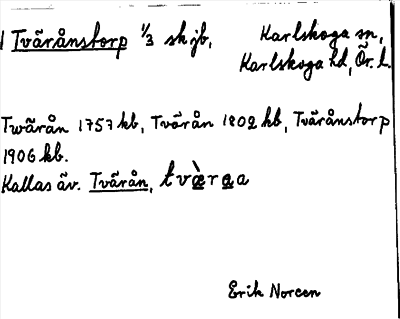 1 Tvärånstorp 1/3 sk jb, Karlskoga sn,
Karlskoga hd, Ör. l.
Twärån 1757 kb, Tvärån 1802 kb, Tvärånstorp
1906 kb.
Kallas äv. Tvärån, tvæ̀raa
Erik Noreen